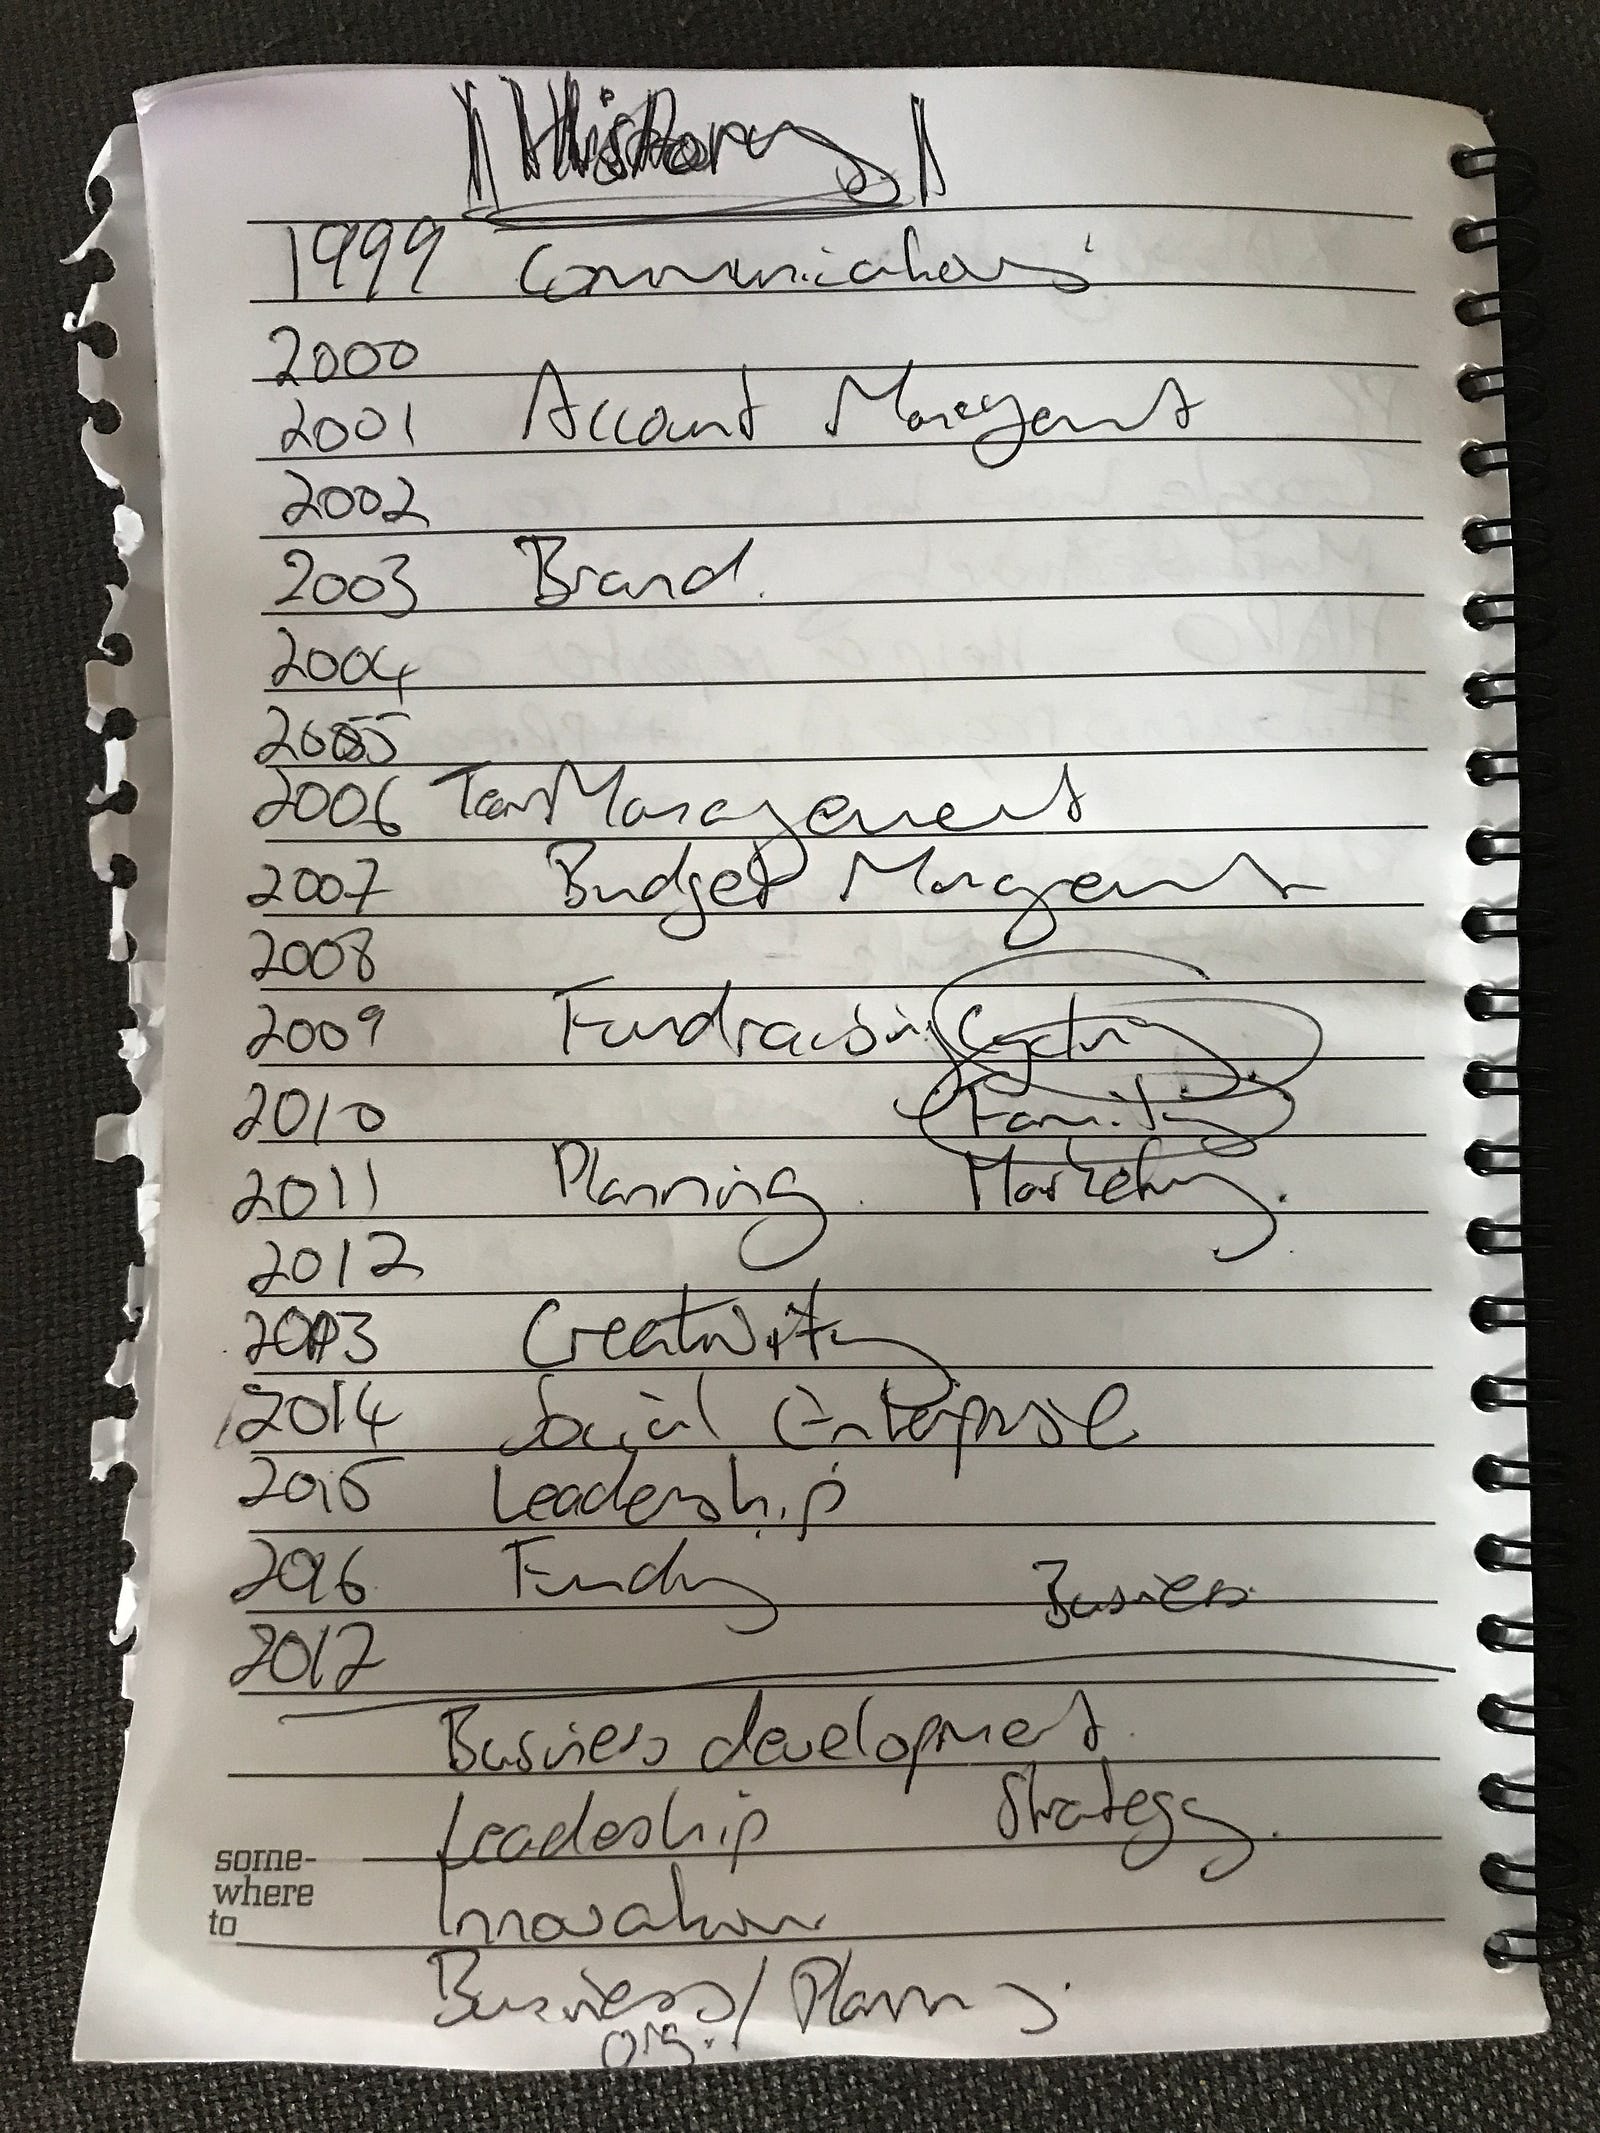 History
1999 Communications
2000
2001 Account Management
2002
2003 Brand.
2004
2005
2006 Team Management
2007 Budget Management
2008
2009 Fundraising
2010 Family
2011 Planning. Marketing.
2012
2013 Creativity
2014 Social Enterprise
2015 Leadership
2016 Funding Business
2017
Business development.
Leadership Strategy.
Innovation
Business / Planning.
org.
some-
where
to